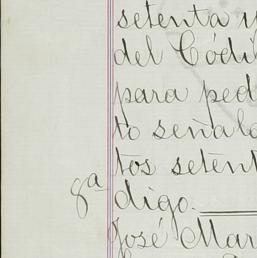 setenta y
del Códi
para ped
to señala
tos setent
8a digo.
José Mar